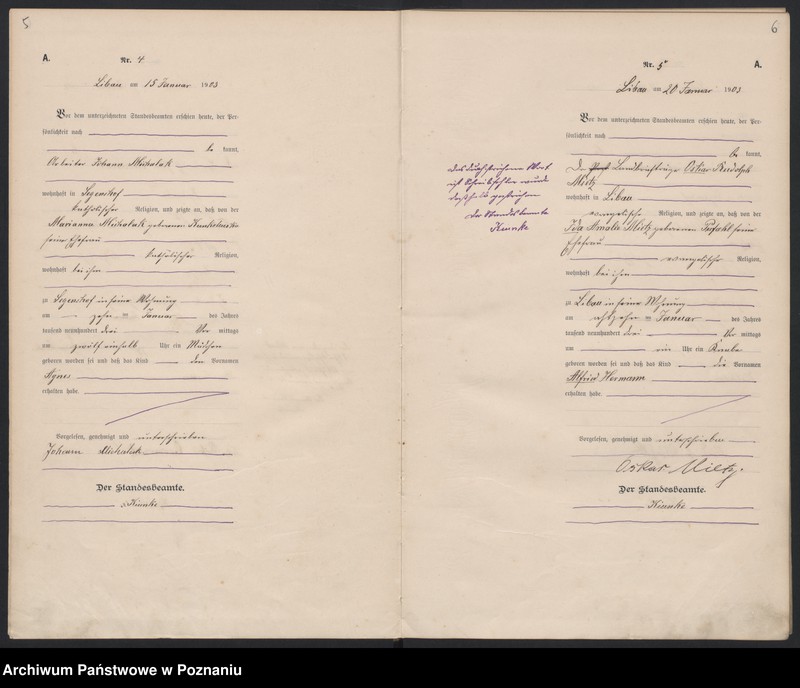 5
A.
Nr. 4
Libau am 15 Januar 1903
Vor dem unterzeichneten Standesbeamten erschien heute, der Per-
sönlichkeit nach
be kannt,
Arbeiter Johann Michalak
wohnhaft in Segenshof
katholischer Religion, und zeigte an, daß von der
Marianna Michalak geborenen
seine Ehefrau
katholischer Religion,
wohnhaft bei ihm
zu Segenshof in seine Wohnung
am zehn ten Januar des Jahres
tausend neunhundert drei Vor mittags
um zwölf einhalb Uhr ein Mädchen
geboren worden sei und daß das Kind den Vornamen
Agnes
erhalten habe.
Vorgelesen, genehmigt und unterschrieben
Johann Michalak
Der Standesbeamte.
Kienke
6
A.
Nr. 5
Libau am 20 Januar 1903
Vor dem unterzeichneten Standesbeamten erschien heute, der Per-
sönlichkeit nach
be kannt,
Der Landbriefträger Oskar Rudolph
Mietz
wohnhaft in Libau
evangelische Religion, und zeigte an, daß von der
Ida Amalie Mietz geborenen seine
Ehefrau
evangelischer Religion,
wohnhaft bei ihm
zu Libau in seine Wohnung
am achtzehn ten Januar des Jahres
tausend neunhundert drei Vor mittags
um ein Uhr ein Knabe
geboren worden sei und daß das Kind die Vornamen
Alfried Hermann
erhalten habe.
Vorgelesen, genehmigt und unterschrieben
Oskar Mietz.
Der Standesbeamte.
Kienke
das durchstrichene Wort
ist Schreibfehler wurde
deshalb gestrichen
der Standesbeamte
Kienke
Archiwum Państwowe w Poznaniu